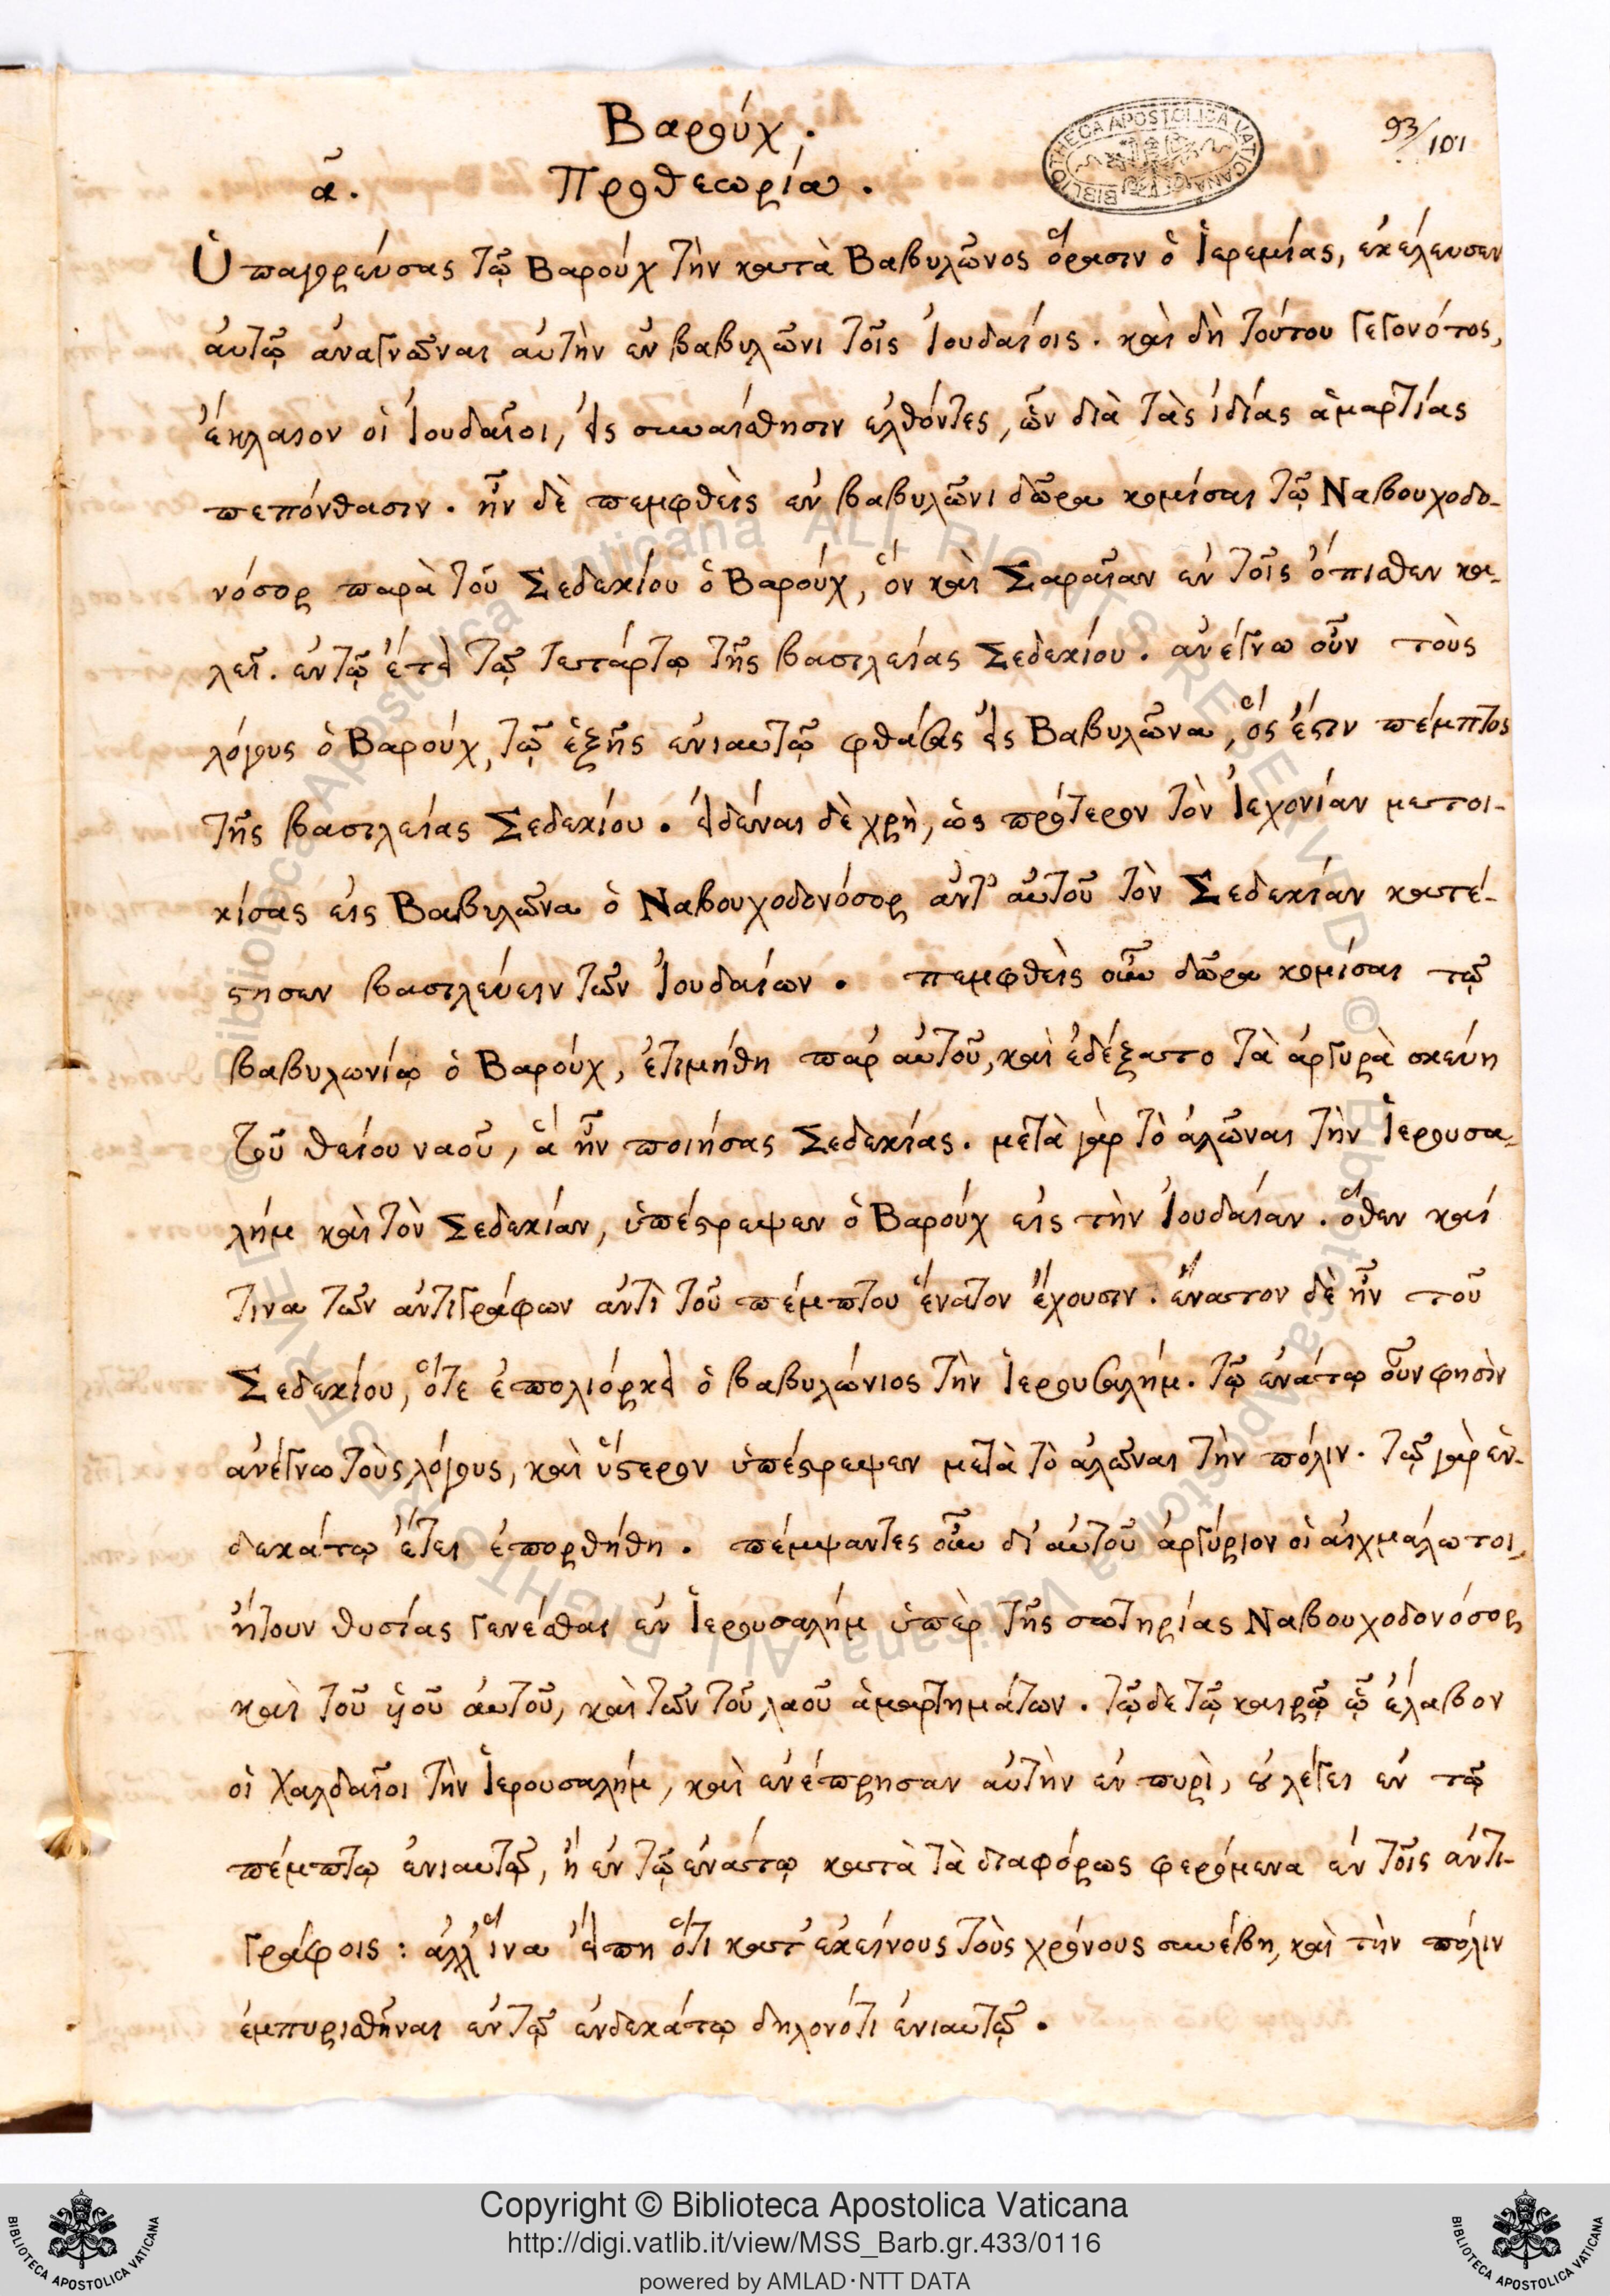 Βαρούχ.
93/101
α. Προθεωρία.
Ὑπαγορεύσας τῷ Βαρούχ τὴν κατὰ Βαβυλῶνος ὅρασιν ὁ Ἱερεμίας, ἐκέλευσεν
αὐτῷ ἀναγνῶναι αὐτὴν ἐν βαβυλῶνι τοῖς Ἰουδαίοις. καὶ δὴ τούτου γεγονότος,
ἔκλαιον οἱ Ἰουδαῖοι, εἰς συναίσθησιν ἐλθόντες, ὧν διὰ τὰς ἰδίας ἁμαρτίας
πεπόνθασιν. ἦν δὲ πεμφθεὶς ἐν βαβυλῶνι δῶρα κομίσαι τῷ Ναβουχοδο-
νόσορ παρὰ τοῦ Σεδεκίου ὁ Βαρούχ, ὃν καὶ Σαραΐαν ἐν τοῖς ὄπισθεν κα-
λεῖ. ἐν τῷ ἔτει τῷ τετάρτῳ τῆς βασιλείας Σεδεκίου. ἀνέγνω οὖν τοὺς
λόγους ὁ Βαρούχ, τῷ ἑξῆς ἐνιαυτῷ φθάσας εἰς Βαβυλῶνα, ὅς ἐστιν πέμπτος
τῆς βασιλείας Σεδεκίου. εἰδέναι δὲ χρὴ, ὡς πρότερον τὸν Ἰεχονίαν μετοι-
κίσας εἰς Βαβυλῶνα ὁ Ναβουχοδονόσορ ἀντ' αὐτοῦ τὸν Σεδεκίαν κατέ-
στησεν βασιλεύειν τῶν Ἰουδαίων. πεμφθεὶς οὖν δῶρα κομίσαι τῷ
βαβυλωνίῳ ὁ Βαρούχ, ἐτιμήθη παρ' αὐτοῦ, καὶ ἐδέξατο τὰ ἀργυρὰ σκεύη
τοῦ θείου ναοῦ, ἃ ἦν ποιήσας Σεδεκίας. μετὰ γὰρ τὸ ἁλῶναι τὴν Ἱερουσα-
λήμ καὶ τὸν Σεδεκίαν, ὑπέστρεψεν ὁ Βαρούχ εἰς τὴν Ἰουδαίαν. ὅθεν καί
τινα τῶν ἀντιγράφων ἀντὶ τοῦ πέμπτου ἔνατον ἔχουσιν. ἔνατον δὲ ἦν τοῦ
Σεδεκίου, ὅτε ἐπολιόρκει ὁ βαβυλώνιος τὴν Ἱερουσαλήμ. τῷ ἐνάτῳ οὖν φησὶν
ἀνέγνω τοὺς λόγους, καὶ ὕστερον ὑπέστρεψεν μετὰ τὸ ἁλῶναι τὴν πόλιν. τῷ γὰρ ἑν-
δεκάτῳ ἔτει ἐπορθήθη. πέμψαντες οὖν δι' αὐτοῦ ἀργύριον οἱ αἰχμάλωτοι,
ᾔτουν θυσίας γενέσθαι ἐν Ἱερουσαλήμ ὑπὲρ τῆς σωτηρίας Ναβουχοδονόσορ
καὶ τοῦ υἱοῦ αὐτοῦ, καὶ τῶν τοῦ λαοῦ ἁμαρτημάτων. τῷ δὲ τῷ καιρῷ ᾧ ἔλαβον
οἱ Χαλδαῖοι τὴν Ἱερουσαλήμ, καὶ ἐνέπρησαν αὐτὴν ἐν πυρὶ, οὐ λέγει ἐν τῷ
πέμπτῳ ἐνιαυτῷ, ἢ ἐν τῷ ἐνάτῳ κατὰ τὰ διαφόρως φερόμενα ἐν τοῖς ἀντι-
γράφοις: ἀλλ' ἵνα εἴπῃ ὅτι κατ' ἐκείνους τοὺς χρόνους συνέβη, καὶ τὴν πόλιν
ἐμπυρισθῆναι ἐν τῷ ἑνδεκάτῳ δηλονότι ἐνιαυτῷ.
BIBLIOTHECA APOSTOLICA VATICANA
Copyright © Biblioteca Apostolica Vaticana
http://digi.vatlib.it/view/MSS_Barb.gr.433/0116
powered by AMLAD·NTT DATA
BIBLIOTECA APOSTOLICA VATICANA
BIBLIOTECA APOSTOLICA VATICANA
© Biblioteca Apostolica Vaticana ALL RIGHTS RESERVED © Biblioteca Apostolica Vaticana ALL RIGHTS RESERVED